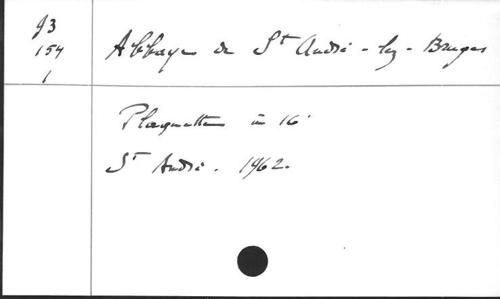 J3
154
1
Abbaye de St André-lez-Bruges
Plaquette in 16°
St André. 1962.